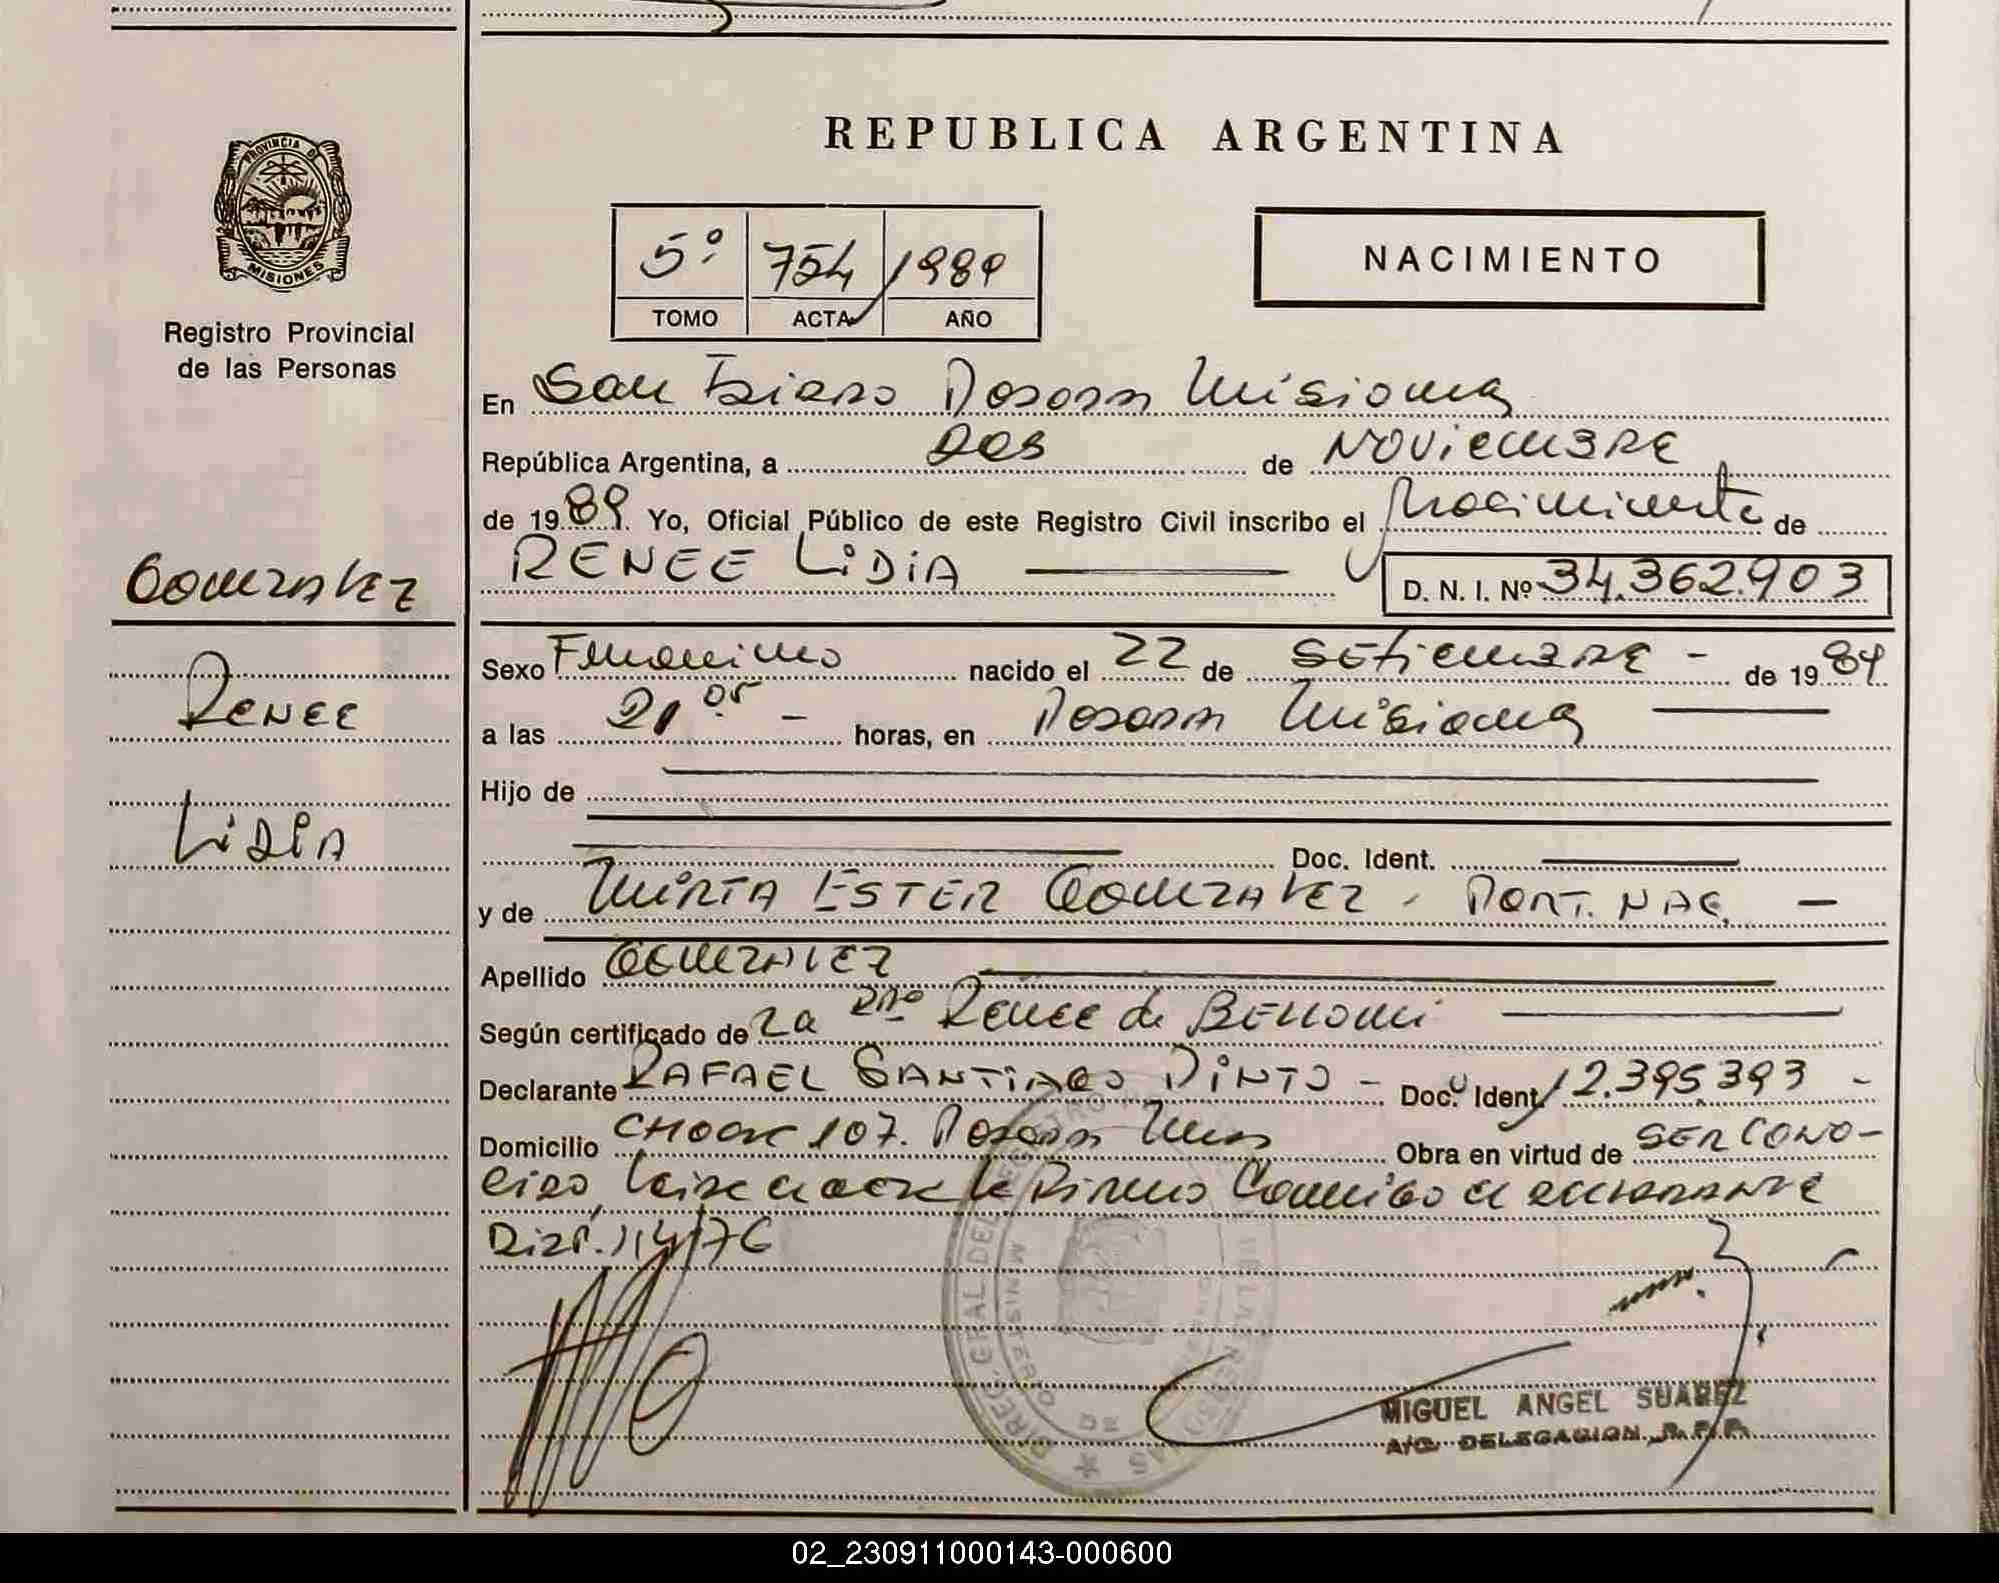 PROVINCIA DE
MISIONES
Registro Provincial
de las Personas
GONZALEZ
RENEE
LiDiA
REPUBLICA ARGENTINA
5º 754 1989
TOMO ACTA AÑO
NACIMIENTO
En San Isidro Posadas Misiones
República Argentina, a DOS de NOViEMBRE
de 1989. Yo, Oficial Público de este Registro Civil inscribo el Nacimiento de
RENEE LiDiA D. N. I. Nº 34.362.903
Sexo Femenino nacido el 22 de SETiEMBRE - de 1989
a las 21 05 - horas, en Posadas Misiones
Hijo de
Doc. Ident.
y de MiRTA ESTER GONZALEZ - PORT. NAC. -
Apellido GONZALEZ
Según certificado de La Renee de
Declarante RAFAEL SANTIAGO PiNTO - Doc. Ident. 12.395.393 -
Domicilio 107. Posadas Mnes Obra en virtud de SER CONO-
CiDO, el DECLARANTE
MIGUEL ANGEL SUAREZ
A/C. DELEGACION R.P.P.
02_230911000143-000600